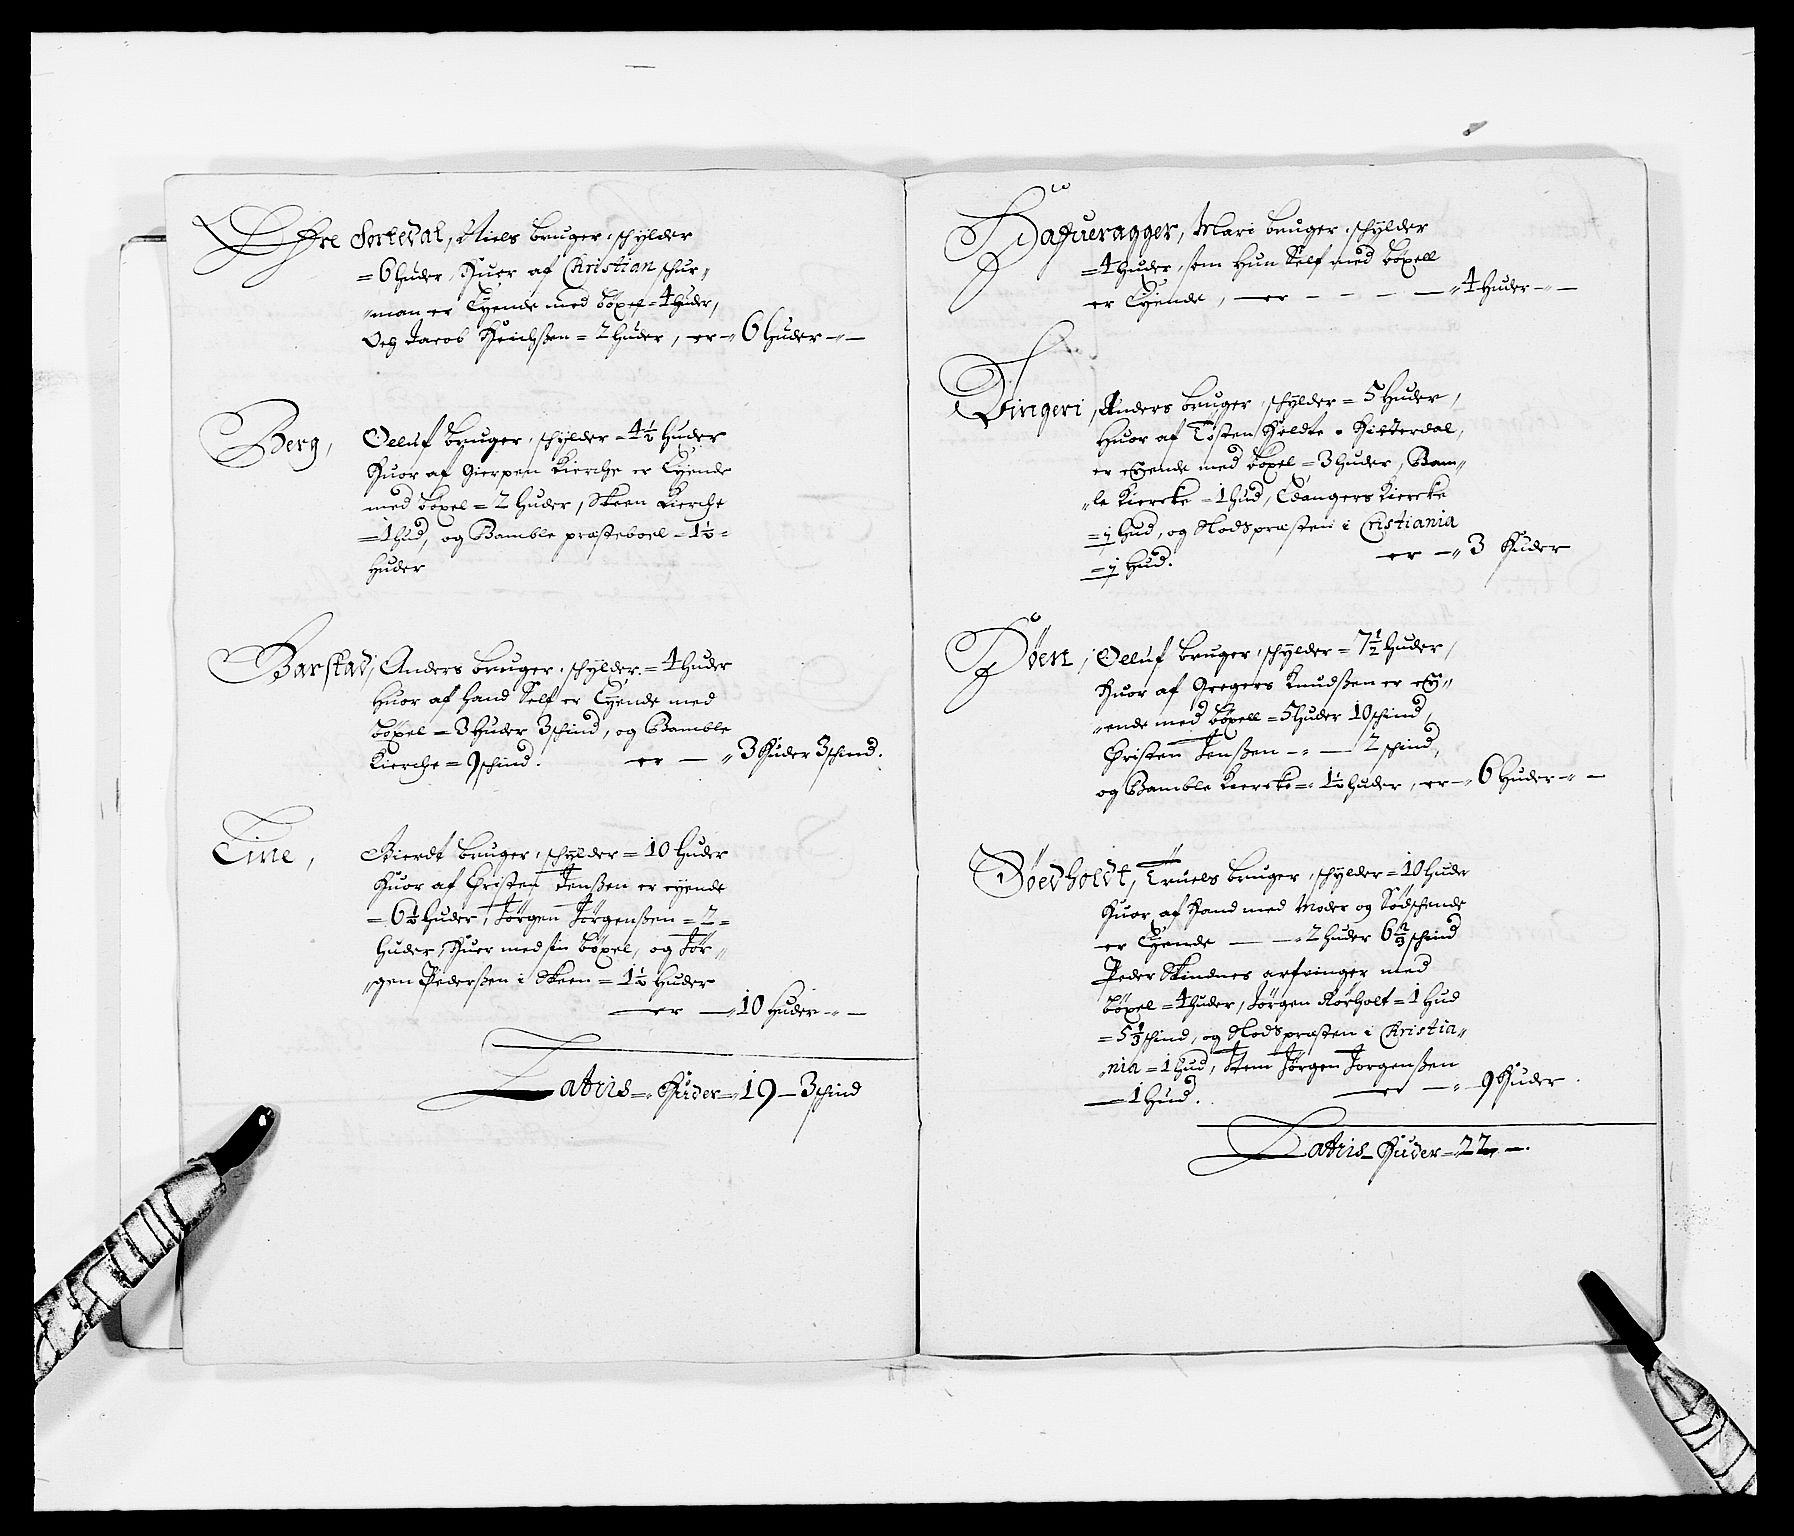 Øfre Sorteval, Niels bruger, schylder
= 6 huder, huer af Christian schur„
„man er Eyende med böxel = 4 huder,
Och Jacob = 2 huder, er „ 6 huder „ —
Berg, Oelluf bruger, schylder = 4½ huder
huor af Gierpen Kierche er Eyende
med böxel = 2 huder, Skeen Kierche
= 1 hud, og Bamble præsteboel – 1½ =
huder
Barstad, Anders bruger, schylder = 4 huder
huor af hand Self er Eyende med
böxel = 3 huder 3 schind, og Bamble
Kierche = 9 schind. er — „ 3 huder 3 schind.
Tine, Gierdt bruger, schylder = 10 huder
huor af Christen Jenßen er eyende
= 6½ huder, Jörgen Jörgenßen = 2 =
huder, huer med sin böxel, og Jör„
„gen Pederßen i Skeen = 1½ huder
— er — „ 10 huder „ —
Lateris „ huder „ 19 – 3 schind
Hafueragger, Mari bruger, schylder
= 4 huder, som hun Self med böxell
er Eyende, — er — — — — „ 4 huder „ —
Tingeri, Anders bruger, schylder = 5 huder,
huor af Tosten i Hitterdal,
er eyende med böxel = 3 huder, Bam„
„le Kiercke – 1 hud, Edangers Kiercke
= ½ hud, og Slodspræsten i Cristiania
= ½ hud. er — „ 3 huder
Döen, Oelluf bruger, schylder = 7½ huder,
huor af Gregers Knudßen er ey„
„ende med böxell = 5 huder 10 schind,
Christen Jenßen — „ — 2 schind,
og Bamble Kiercke = 1½ huder, er — 6 huder „ —
Döevholdt, Truels bruger, schylder = 10 huder
huor af hand med Moder og Södschende
er Eyende — — „ 2 huder 6⅔ schind
Peder Skindnes arfvinger med
böxel = 4 huder, Jörgen Rörholt = 1 hud
= 5⅓ schind, og Slodspræsten i Christia„
„nia = 1 hud, Item Jörgen Jorgenßen
— 1 hud. — er — „ 9 huder.
Lateris huder = 22 „ —.